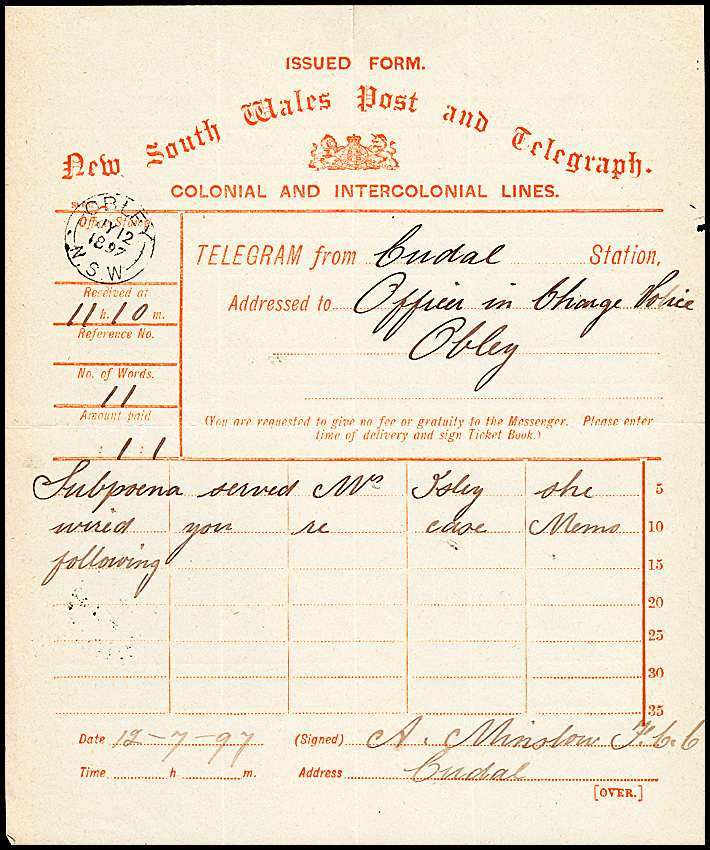 ISSUED FORM.
New South Wales Post and Telegraph.
COLONIAL AND INTERCOLONIAL LINES.
OBLEY
JY 12
1897
N.S.W
Office Stamp
TELEGRAM from Cudal Station,
Addressed to Officer in Charge Police
Obley
Received at
11 h. 10 m.
Reference No.
No. of Words.
11
Amount paid
: 1 : 1
(You are requested to give no fee or gratuity to the Messenger. Please enter
time of delivery and sign Ticket Book.)
Subpoena served Mrs Isley she 5
wired you re case Memo 10
following 15
20
25
30
35
Date 12-7-97 (Signed) A. Minslow
Time h. m. Address Cudal
[OVER.]